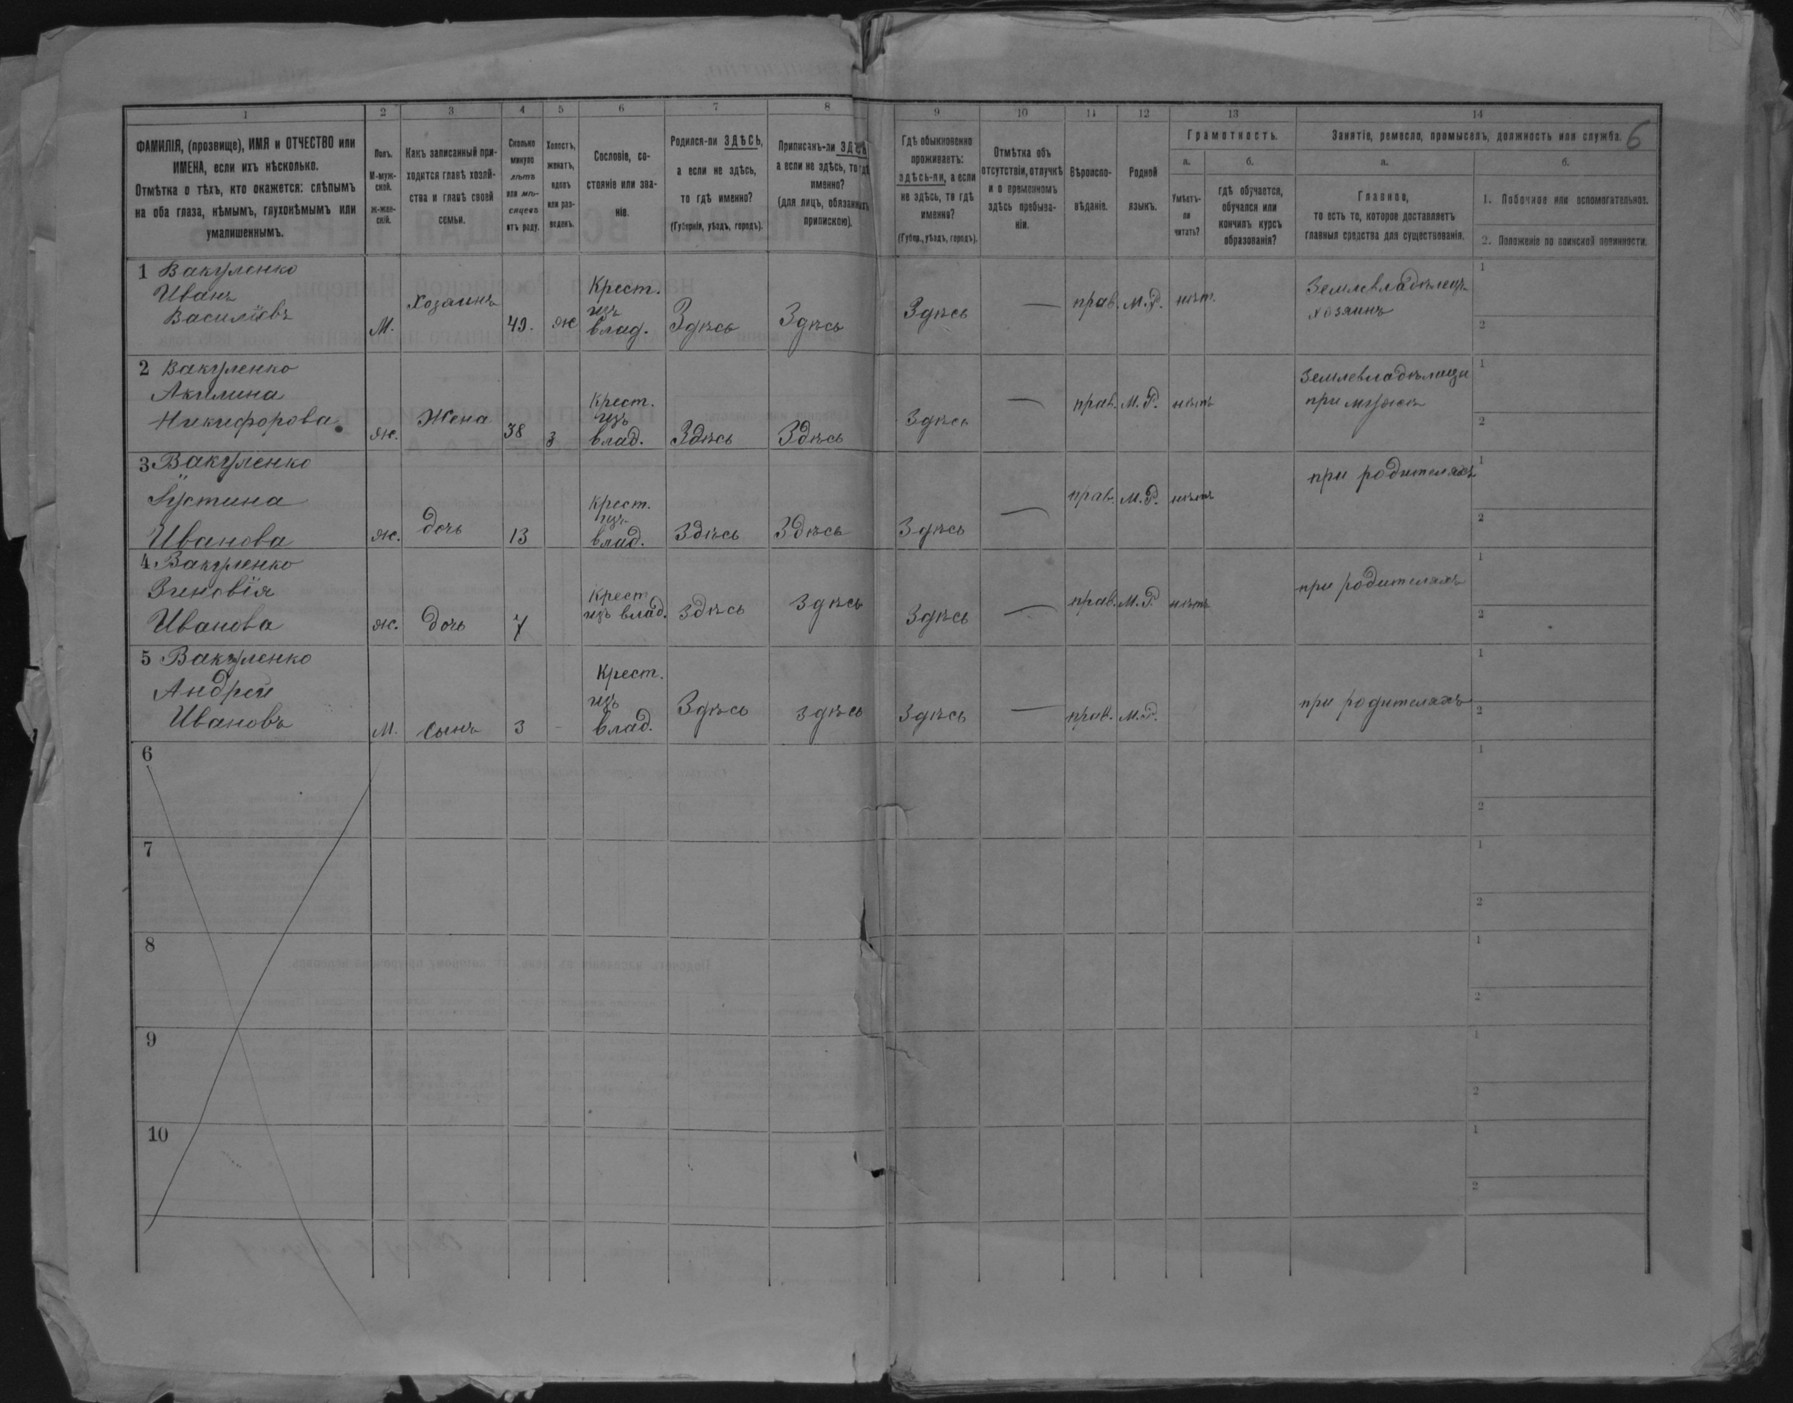 1 2 3 4 5 6 7 8 9 10 11 12 13 14
6
ФАМИЛІЯ, (прозвище), ИМЯ и ОТЧЕСТВО или
ИМЕНА, если ихъ нѣсколько.
Отмѣтка о тѣхъ, кто окажется: слѣпымъ
на оба глаза, нѣмымъ, глухонѣмымъ или
умалишеннымъ.
Полъ.
М-муж-
ской.
Ж-жен-
скій.
Какъ записанный при-
ходится главѣ хозяй-
ства и главѣ своей
семьи.
Сколько
минуло
лѣтъ
или мѣ-
сяцевъ
отъ роду.
Холостъ,
женатъ,
вдовъ
или раз-
веденъ.
Сословіе, со-
стояніе или зва-
ніе.
Родился-ли ЗДѢСЬ,
а если не здѣсь,
то гдѣ именно?
(Губернія, уѣздъ, городъ).
Приписанъ-ли ЗДѢСЬ
а если не здѣсь, то гдѣ
именно?
(для лицъ, обязанныхъ
припискою).
Гдѣ обыкновенно
проживаетъ:
здѣсь-ли, а если
не здѣсь, то гдѣ
именно?
(Губер., уѣздъ, городъ).
Отмѣтка объ
отсутствіи, отлучкѣ
и о временномъ
здѣсь пребыва-
ніи.
Вѣроиспо-
вѣданіе.
Родной
языкъ.
Грамотность.
а.
б.
Умѣетъ-
ли
читать?
гдѣ обучается,
обучался или
кончилъ курсъ
образованія?
Занятіе, ремесло, промыселъ, должность или служба.
а.
б.
Главное,
то есть то, которое доставляетъ
главныя средства для существованія.
1. Побочное или вспомогательное.
2. Положеніе по воинской повинности.
1 Вакуленко
Иванъ
Василіевъ
М.
Хозаинъ
49.
ж
Крест.
изъ
влад.
Здѣсь
Здѣсь
Здѣсь
—
прав.
М.Р.
нѣтъ
Землевладѣлецъ
хозяинъ
1
2
2 Вакуленко
Акилина
Никифорова
ж.
Жена
38
з
Крест.
изъ
влад.
Здѣсь
Здѣсь
Здѣсь
—
прав.
М.Р.
нѣтъ
Землевладѣлица
при мужѣ
1
2
3 Вакуленко
Іустина
Иванова
ж.
дочь
13
Крест.
изъ
влад.
Здѣсь
Здѣсь
Здѣсь
—
прав.
М.Р.
нѣтъ
при родителяхъ
1
2
4 Вакуленко
Зиновія
Иванова
ж.
дочь
7
Крест
изъ влад.
здѣсь
здѣсь
Здѣсь
—
прав.
М.Р.
нѣтъ
при родителяхъ
1
2
5 Вакуленко
Андрей
Ивановъ
М.
сынъ
3
-
Крест.
изъ
влад.
Здѣсь
здѣсь
Здѣсь
—
прав.
М.Р.
при родителяхъ
1
2
6
1
2
7
1
2
8
1
2
9
1
2
10
1
2